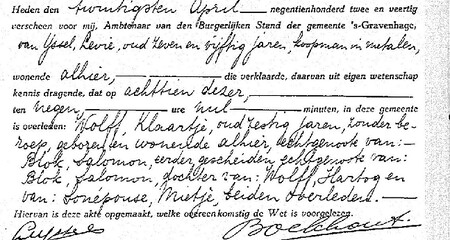 Heden den twintigsten April negentienhonderd twee en veertig
verscheen voor mij, Ambtenaar van den Burgerlijken Stand der gemeente 's-Gravenhage,
van IJssel, Levie, oud zeven en vijftig jaren, koopman in metalen,
wonende alhier, die verklaarde, daarvan uit eigen wetenschap
kennis dragende, dat op achttien dezer,
ten negen ure nul minuten, in deze gemeente
is overleden: Wolff, Klaartje, oud zestig jaren, zonder be-
roep, geboren en wonende alhier, echtgenoote van:
Blok, Salomon, eerder gescheiden echtgenoote van:
Blok, Salomon, dochter van: Wolff, Hartog en
van: Sonépouse, Mietje, beiden overleden.
Hiervan is deze akte opgemaakt, welke overeenkomstig de Wet is voorgelezen.